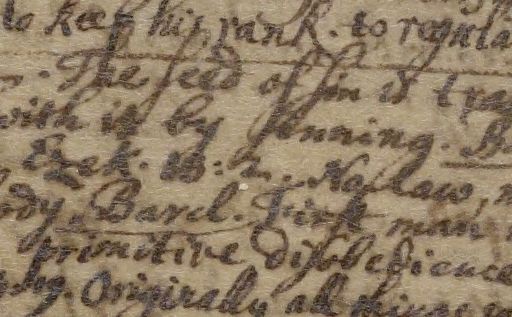 to keep his rank. to regula
The seed of sin is tra
with it by sinning. B
Ezek. 18: 2. No law, n
Barcl. First man
primitive disobedience
Originally all things